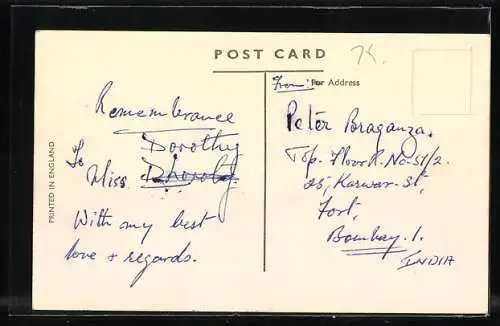 POST CARD
74.
From:- For Address
Remembrance
To
Dorothy
Miss Dhoroty.
With my best
love & regards.
Peter Braganza.
Top. Floor R. No-51/2.
25, Karwar. St,
Fort,
Bombay. 1.
INDIA
PRINTED IN ENGLAND